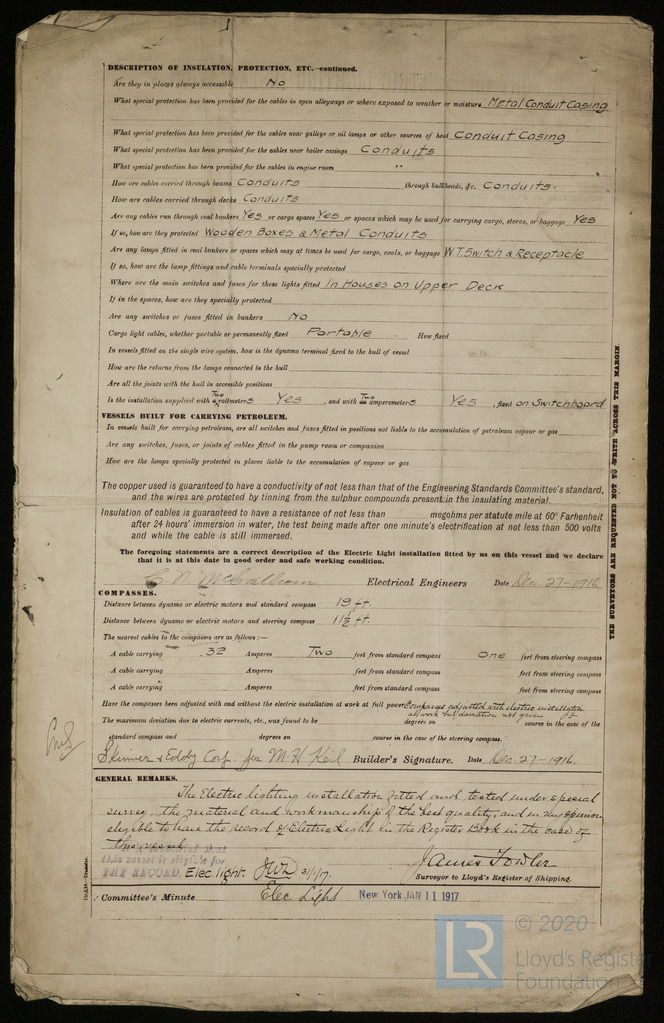 DESCRIPTION OF INSULATION, PROTECTION, ETC.—continued.
Are they in places always accessible No
What special protection has been provided for the cables in open alleyways or where exposed to weather or moisture Metal Conduit Casing
What special protection has been provided for the cables near galleys or oil lamps or other sources of heat Conduit Casing
What special protection has been provided for the cables near boiler casings Conduits
What special protection has been provided for the cables in engine room "
How are cables carried through beams Conduits through bulkheads, &c. Conduits.
How are cables carried through decks Conduits
Are any cables run through coal bunkers Yes or cargo spaces Yes or spaces which may be used for carrying cargo, stores, or baggage Yes
If so, how are they protected Wooden Boxes & Metal Conduits
Are any lamps fitted in coal bunkers or spaces which may at times be used for cargo, coals, or baggage W.T. Switch & Receptacle
If so, how are the lamp fittings and cable terminals specially protected
Where are the main switches and fuses for these lights fitted In Houses on Upper Deck
If in the spaces, how are they specially protected
Are any switches or fuses fitted in bunkers No
Cargo light cables, whether portable or permanently fixed Portable How fixed
In vessels fitted on the single wire system, how is the dynamo terminal fixed to the hull of vessel
How are the returns from the lamps connected to the hull
Are all the joints with the hull in accessible positions
Is the installation supplied with a Two voltmeters Yes, and with an Two amperemeters Yes, fixed on Switchboard
VESSELS BUILT FOR CARRYING PETROLEUM.
In vessels built for carrying petroleum, are all switches and fuses fitted in positions not liable to the accumulation of petroleum vapour or gas
Are any switches, fuses, or joints of cables fitted in the pump room or companion
How are the lamps specially protected in places liable to the accumulation of vapour or gas
The copper used is guaranteed to have a conductivity of not less than that of the Engineering Standards Committee's standard,
and the wires are protected by tinning from the sulphur compounds present in the insulating material.
Insulation of cables is guaranteed to have a resistance of not less than megohms per statute mile at 60° Farhenheit
after 24 hours' immersion in water, the test being made after one minute's electrification at not less than 500 volts
and while the cable is still immersed.
The foregoing statements are a correct description of the Electric Light installation fitted by us on this vessel and we declare
that it is at this date in good order and safe working condition.
Electrical Engineers Date Dec. 27-1916
COMPASSES.
Distance between dynamo or electric motors and standard compass 19 ft.
Distance between dynamo or electric motors and steering compass 11½ ft.
The nearest cables to the compasses are as follows:—
A cable carrying .32 Amperes Two feet from standard compass One feet from steering compass
A cable carrying Amperes feet from standard compass feet from steering compass
A cable carrying Amperes feet from standard compass feet from steering compass
Have the compasses been adjusted with and without the electric installation at work at full power Compasses adjusted with electric installation
all work but deviation not given
The maximum deviation due to electric currents, etc., was found to be degrees on course in the case of the
standard compass and degrees on course in the case of the steering compass.
Skinner & Eddy Corp. for M. H. Keil Builder's Signature. Date Dec. 27-1916.
GENERAL REMARKS.
The Electric lighting installation fitted and tested under special
survey, the material and workmanship of the best quality, and in my opinion
eligible to have the record of Electric Light in the Register Book in the case of
this vessel
this vessel is eligible for
THE RECORD. Elec. light. 31/1/17.
James Fowler
Surveyor to Lloyd's Register of Shipping.
Committee's Minute. Elec Light New York JAN 11 1917
THE SURVEYORS ARE REQUESTED NOT TO WRITE ACROSS THIS MARGIN.
© 2020
LR
Lloyd's Register
Foundation